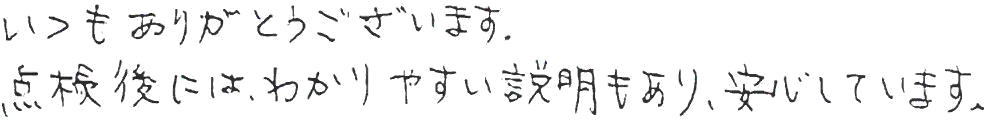 いつもありがとうございます.
点検後には、わかりやすい説明もあり、安心しています。